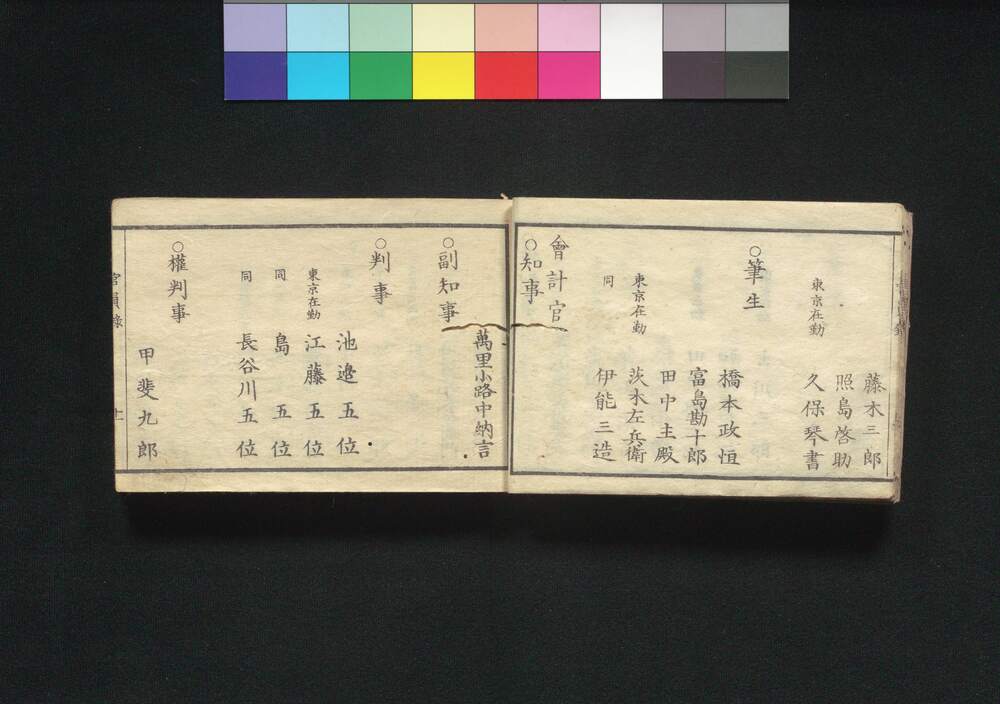 藤木三郎
照島啓助
東京在勤 久保琴書
○筆生
橋本政恒
富島勘十郎
田中主殿
東京在勤 茨木左兵衛
同 伊能三造
會計官
○知事
萬里小路中納言
○副知事
○判事
池邉五位
東京在勤 江藤五位
同 島五位
同 長谷川五位
○權判事
甲斐九郎
官員錄 上